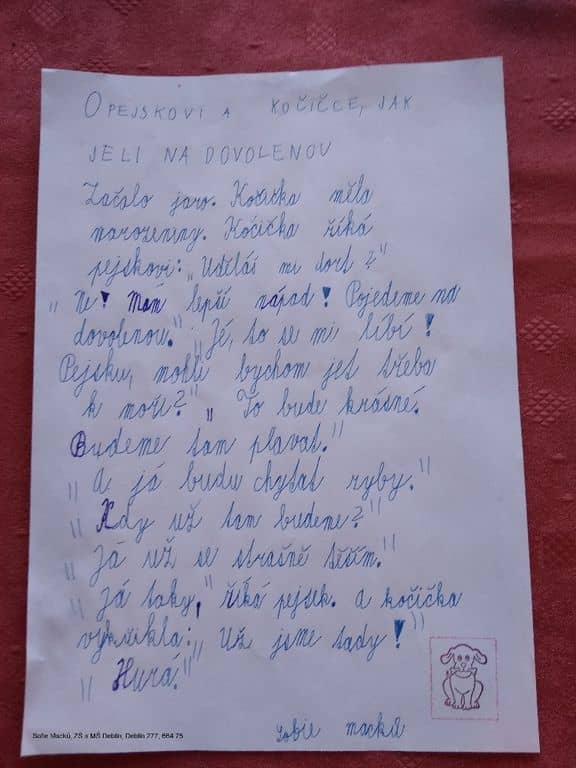 O PEJSKOVI A KOČIČCE, JAK
JELI NA DOVOLENOU
Začalo jaro. Kočička měla
narozeniny. Kočička říká
pejskovi: „Uděláš mi dort?"
„Ne! Mám lepší nápad! Pojedeme na
dovolenou." „Jé, to se mi líbí!
Pejsku, mohli bychom jet třeba
k moři?" „To bude krásné.
Budeme tam plavat."
„A já budu chytat ryby."
„Kdy už tam budeme?"
„Já už se strašně těším."
„Já taky," říká pejsek. A kočička
vykřikla: „Už jsme tady!"
„Hurá."
Sofie Macků
Sofie Macků, ZŠ a MŠ Deblín, Deblín 277, 664 75